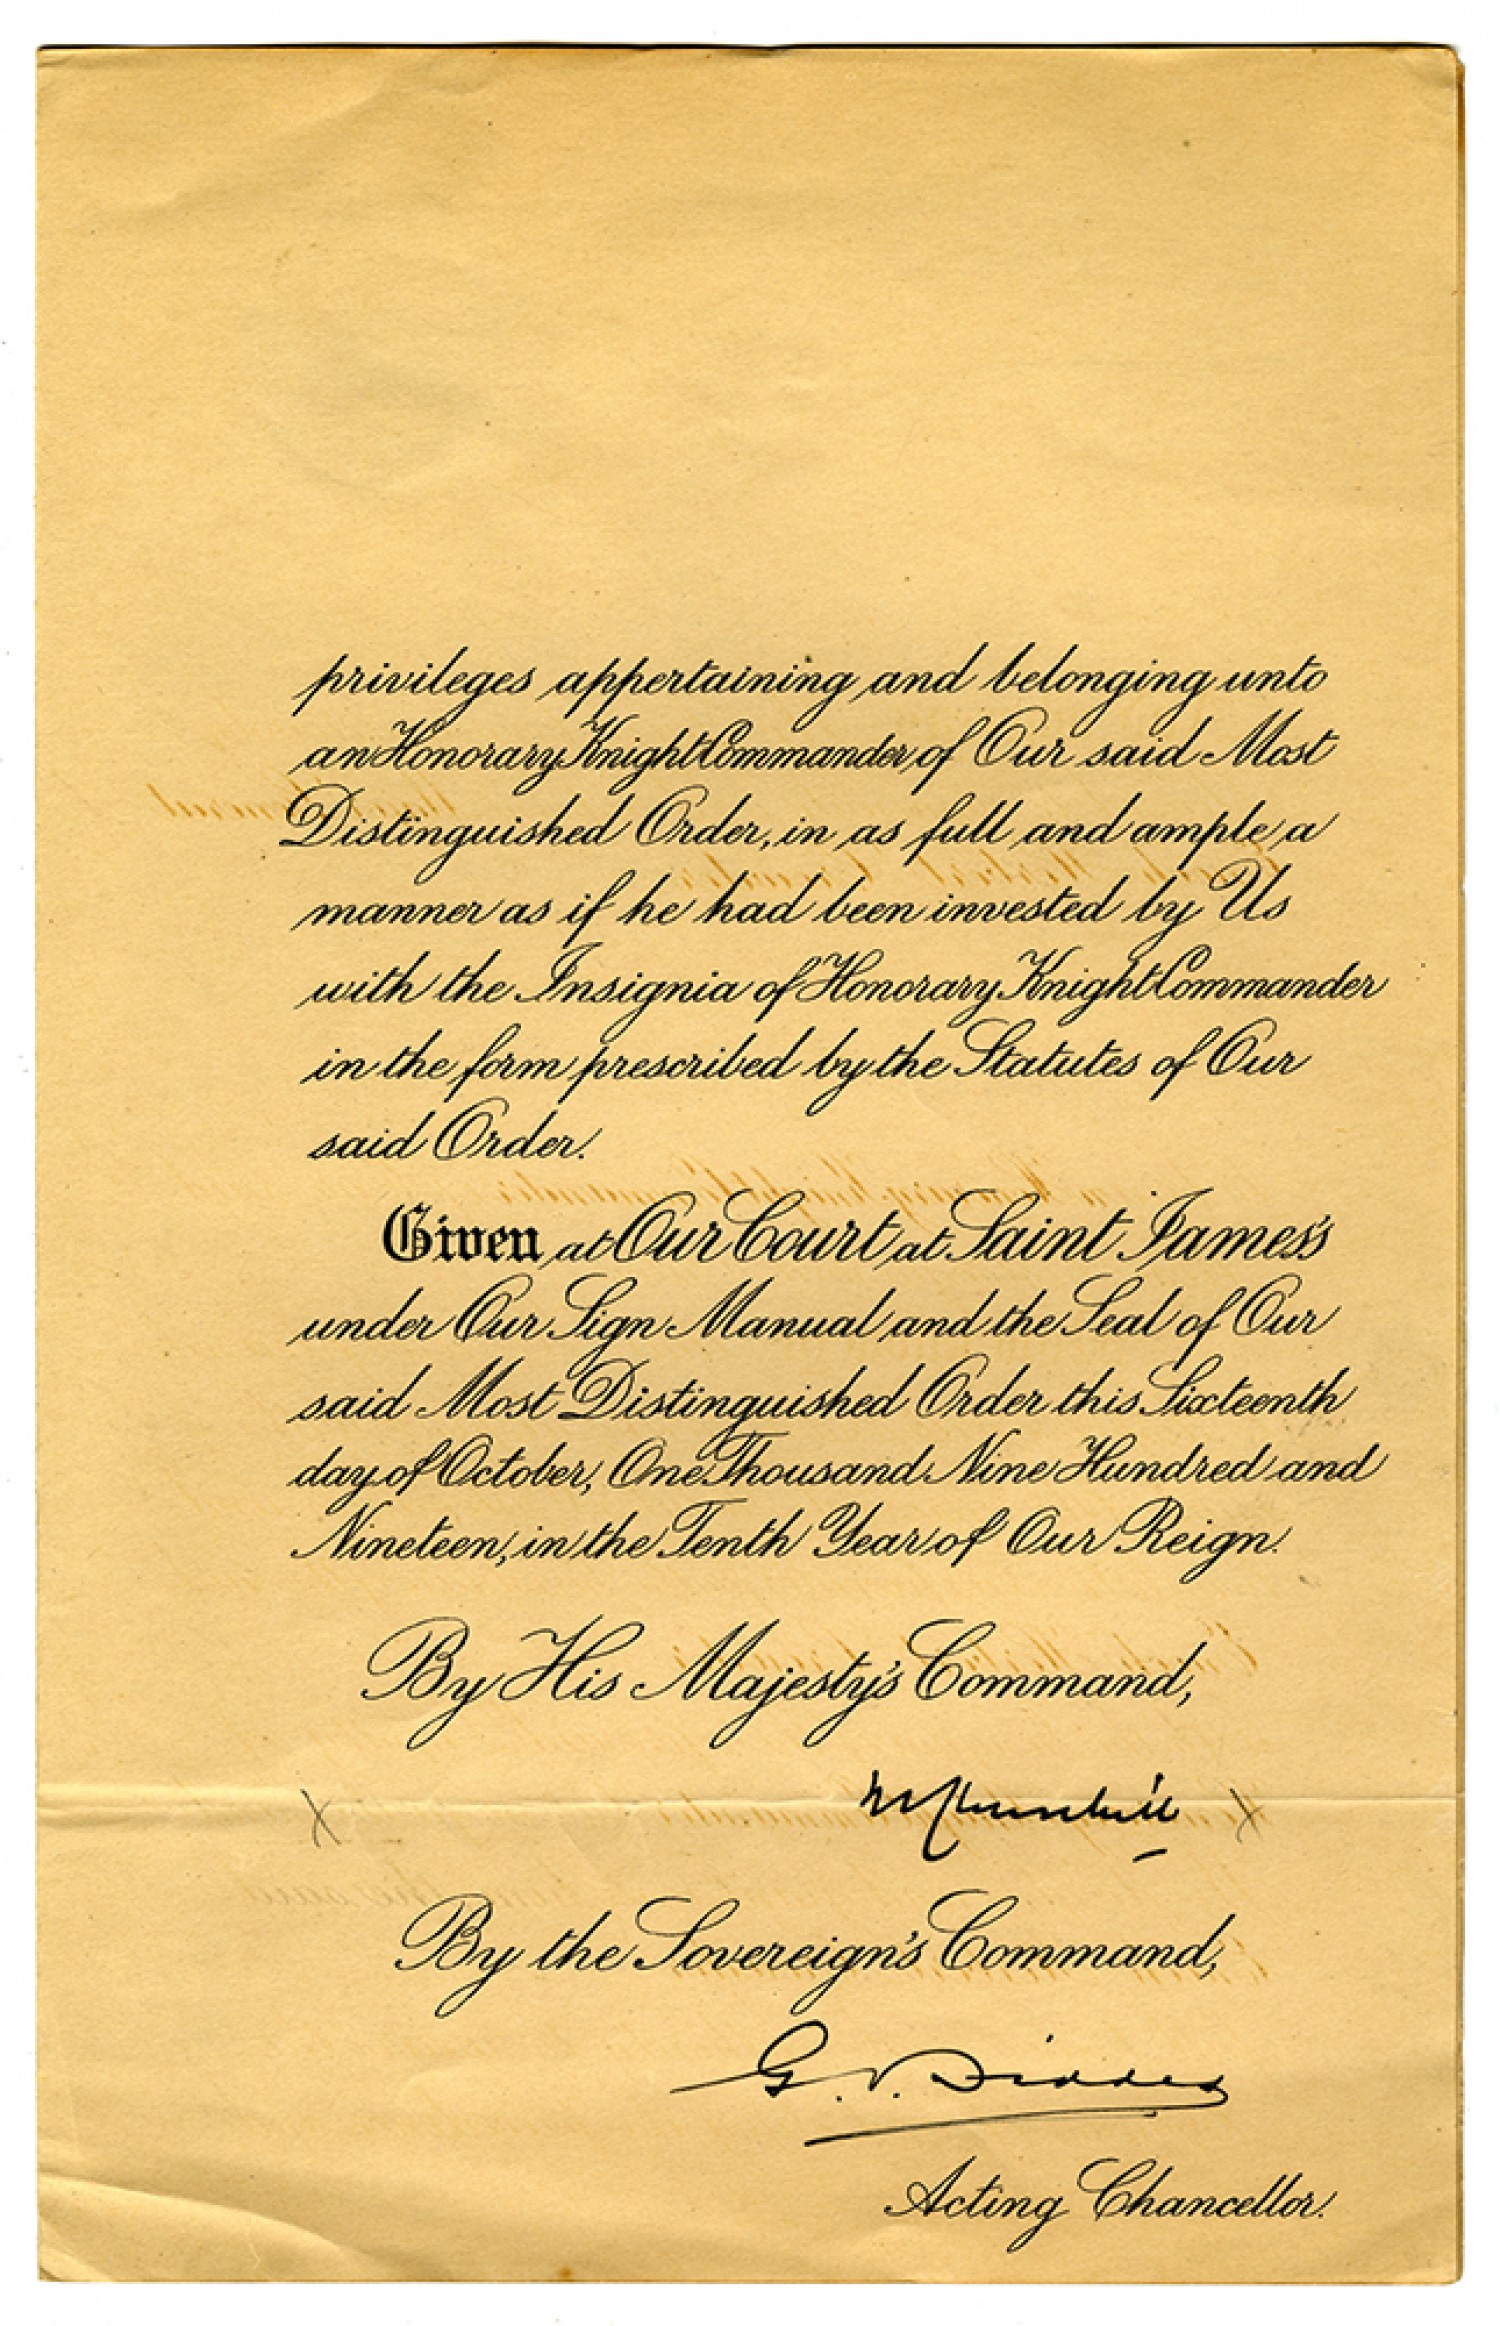 privileges appertaining and belonging unto
an Honorary Knight Commander of Our said Most
Distinguished Order, in as full and ample a
manner as if he had been invested by Us
with the Insignia of Honorary Knight Commander
in the form prescribed by the Statutes of Our
said Order.
Given at Our Court at Saint James's
under Our Sign Manual and the Seal of Our
said Most Distinguished Order this Sixteenth
day of October, One Thousand Nine Hundred and
Nineteen, in the Tenth Year of Our Reign.
By His Majesty's Command,
x Churchill x
By the Sovereign's Command,
G. V. Fiddes
Acting Chancellor.